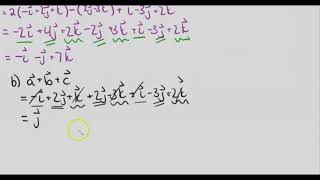 = 2(-i⃗+2j⃗+k⃗)-(2j⃗-3k⃗)+i⃗-3j⃗+2k⃗
= -2i⃗+4j⃗+2k⃗-2j⃗+3k⃗+i⃗-3j⃗+2k⃗
= -i⃗ -j⃗+7k⃗
b) a⃗+b⃗+c⃗
= -i⃗+2j⃗+k⃗+2j⃗-3k⃗+i⃗-3j⃗+2k⃗
= j⃗